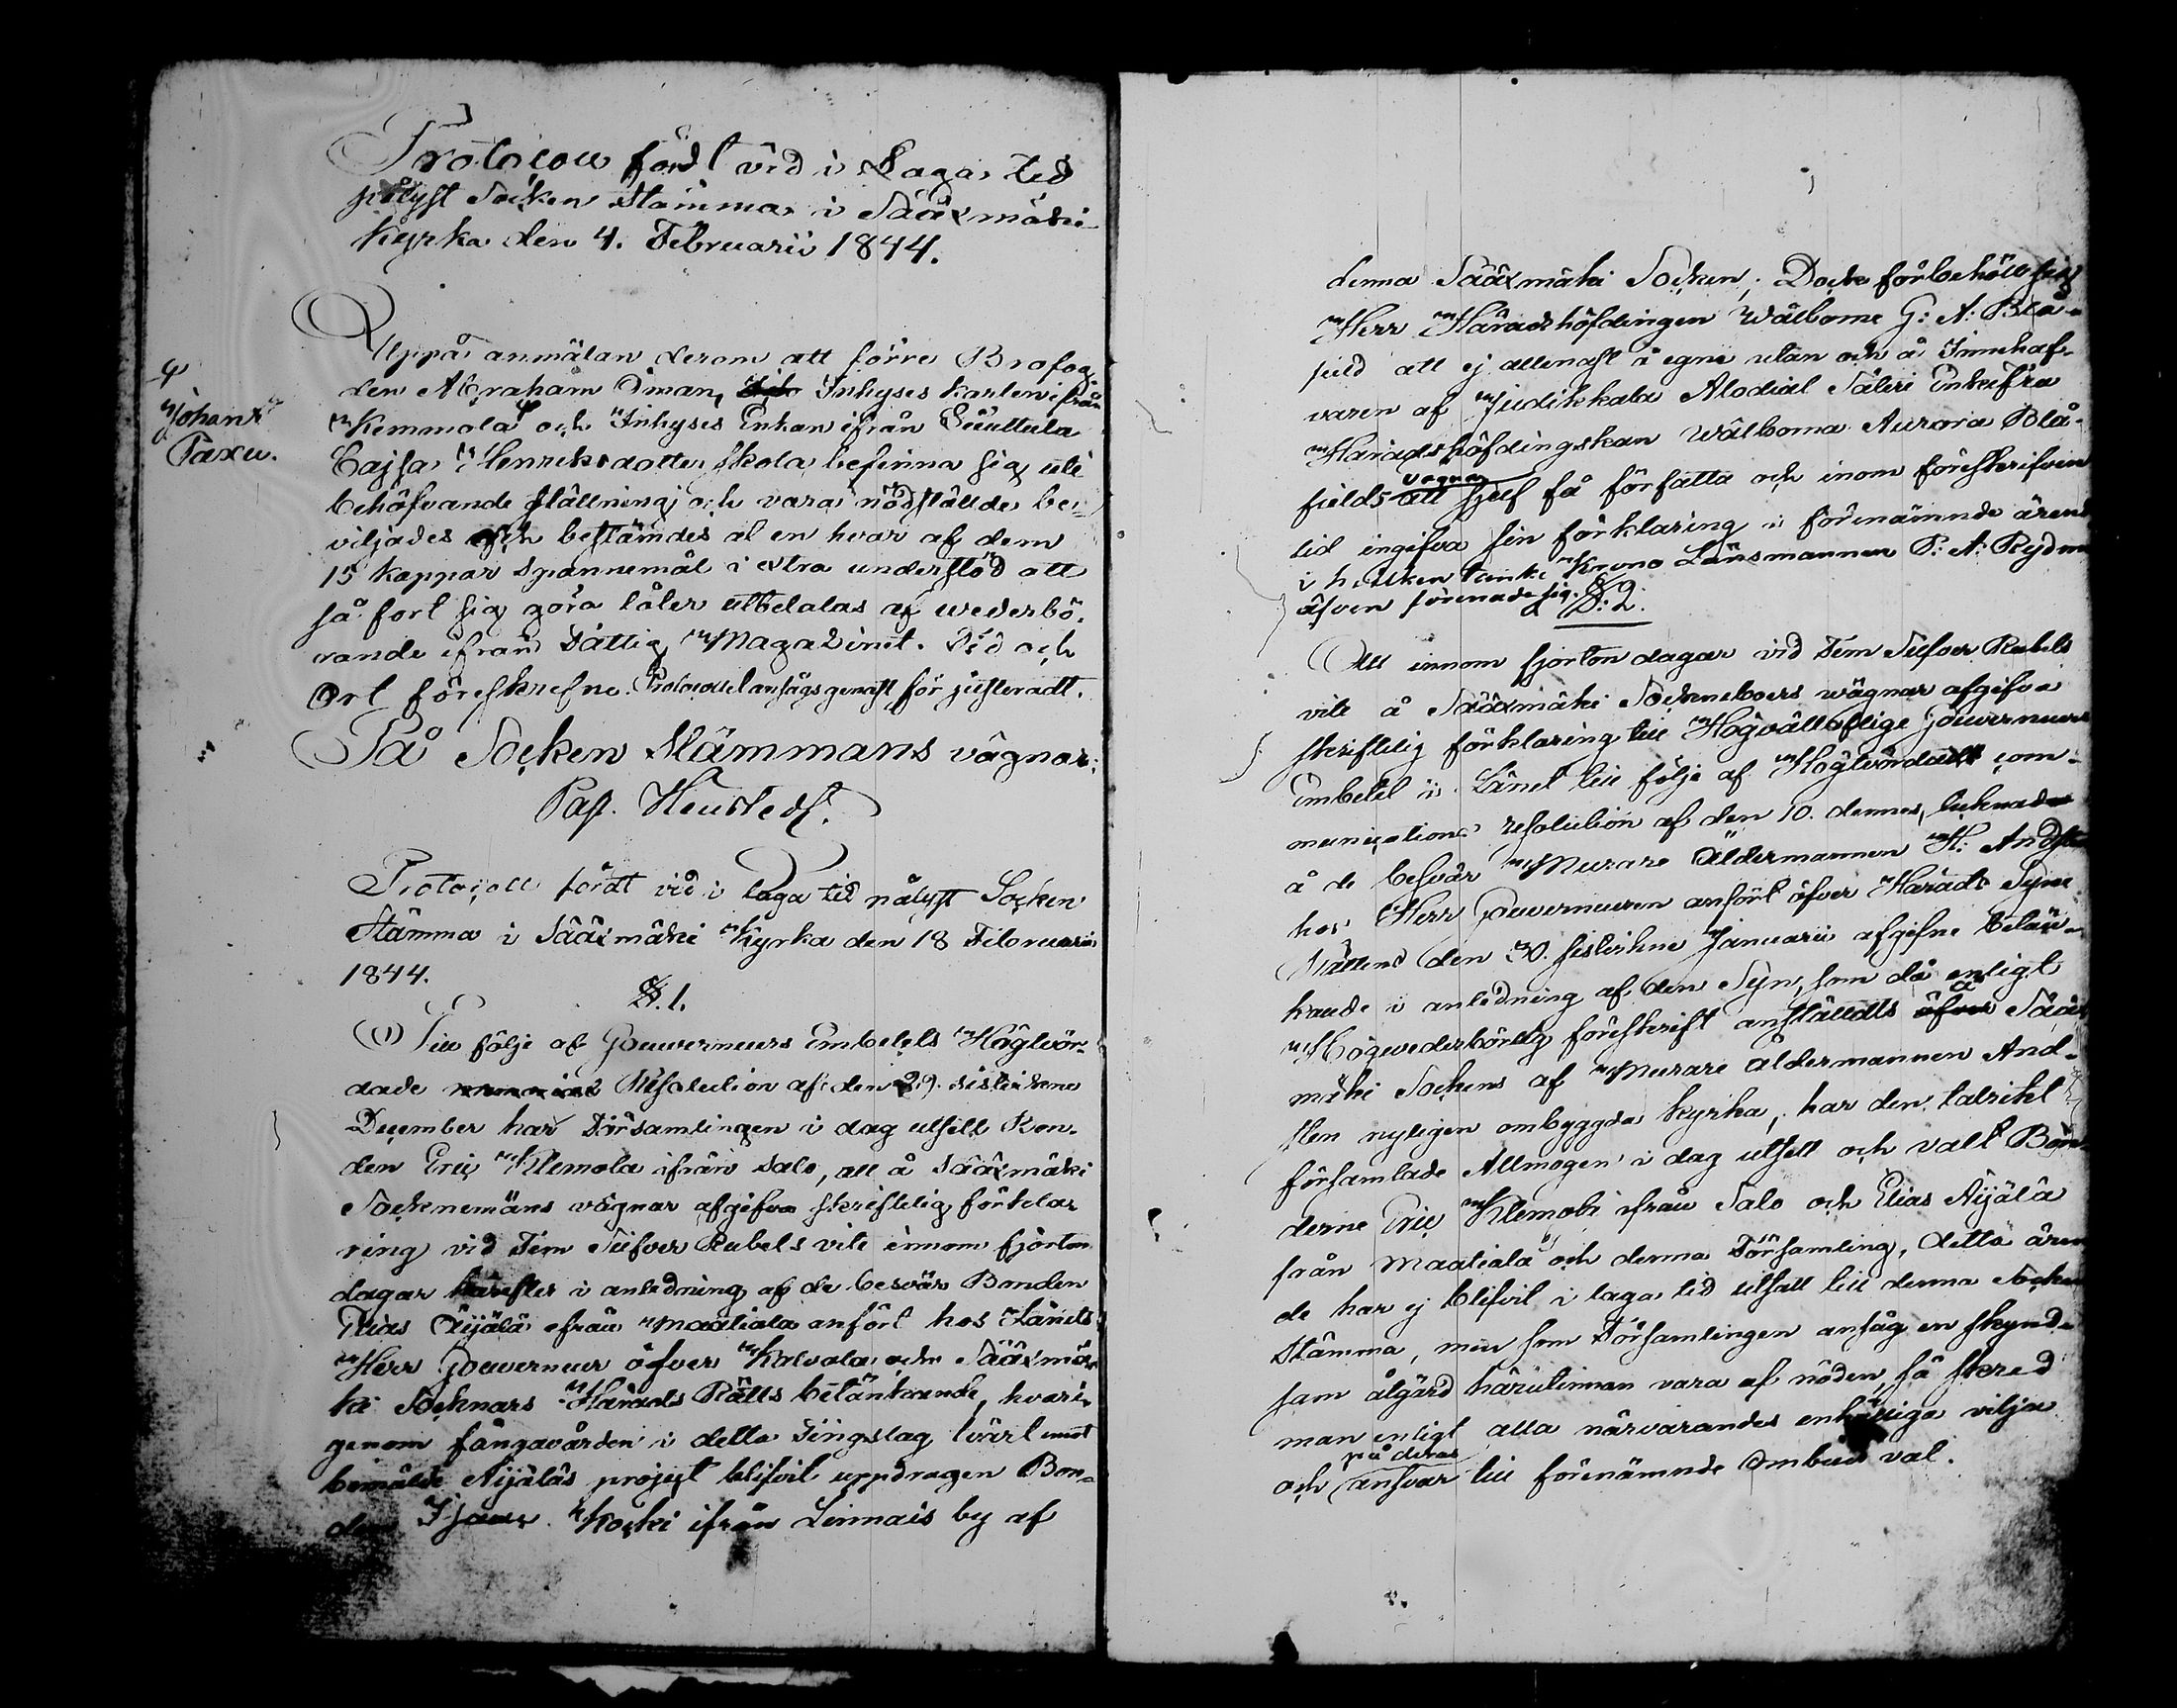 Protocoll fördt vid i Laga tid
pålyst Socken Stämma i Sääxmäki
Kyrka den 4. Februarii 1844.
Uppå anmälan derom att förre Brofog
den Abraham Öman, Inhyses karlen ifrån
Kemmola och Inhyses Enkan ifrån
Johan
Paxu.
Cajsa Henriksdotter skola befinna sig uti
behöfvande ställning och vara nödställde be-
viljades och bestämdes at en hvar af dem
15 kappar Spannemål i extra understöd att
så fort sig göra låter utbetalas af wederbö-
rande ifrån Fattig Magazinet. Tid och
Ort föreskrefne. Protocollet ansågs genast för justeradt.
På Socken Stämmans vägnar:
Protocoll fördt vid i laga tid pålyst Socken
Stämma i Sääxmäki Kyrka den 18 Februarii
1844.
§.1.
Till följe af Gouverneurs Embetets Högtvör-
dade Resolution af den 29. sistledne
December har Församlingen i dag utsett Bon-
den Eric Klemola ifrån Salo, att å Sääxmäki
Sockneméns vägnar afgifva skriftelig förklar
ring vid Fem Silfver Rubels vite innom fjorton
dagar härefter i anledning af de besvär Bonden
Elias Äijälä ifrån Maatiala anfört hos Länets
Herr Gouverneur öfver Kalvola och Sääxmä-
ki Socknars Härads Rätts betänkande, hvari-
genom fångavården i detta Tingslag tvärt emot
bemälde Äijäläs project blifvit uppdragen Bon-
den Kocki ifrån Linnais by af
denna Sääxmäki Socken; Docke förbehöll sig
Herr Häradshöfdingen Wälborne G: A: Blå-
field att ej allenast å egne utan och å Innehaf-
varen af Judikkala Alodial Säteri Enkefru
Häradshöfdingskan Wälborna Aurora Blå-
fields vägnar att sjelf få författa och inom föreskrifven
tid ingifva sin förklaring i förenämnde ärend
i hvilken tanke Krono Länsmannen P: A: Rydm
äfven förenade sig. §:2.
Att innom fjorton dagar vid Fem Silfver Rubels
vite å Sääxmäki Sockneboers wägnar afgifva
skriftelig förklaring till Högvälloflige Gouverneurs
Embetet i Länet till följe af Högtvördadt com-
munications resolution af den 10. dennes, tecknad
å de besvär Murare Åldermannen H: Andst
hos Herr Gouverneuren anfört öfver Härads Syne
Rättens den 30. sistledne Januarii afgifne betän-
kande i anledning af den Syn, som då enligt
Högvederbörlig föreskrift anställdts å Sääx
mäki Sockens af Murare åldermannen And-
sten nyligen ombyggda Kyrka, har den talrikt
församlade Allmogen i dag utsett och valt Bön
derne Eric Klemola ifrån Salo och Elias Äijälä
från Maatiala by och denna Församling, detta ären
de har ej blifvit i laga tid utsatt till denna Socken
Stämma, men som Församlingen ansåg en skynd-
sam åtgärd härutinnan vara af nöden, så skred
man enligt alla närvarandes enhälliga vilja
och på deras ansvar till förenämnde Ombuds val.